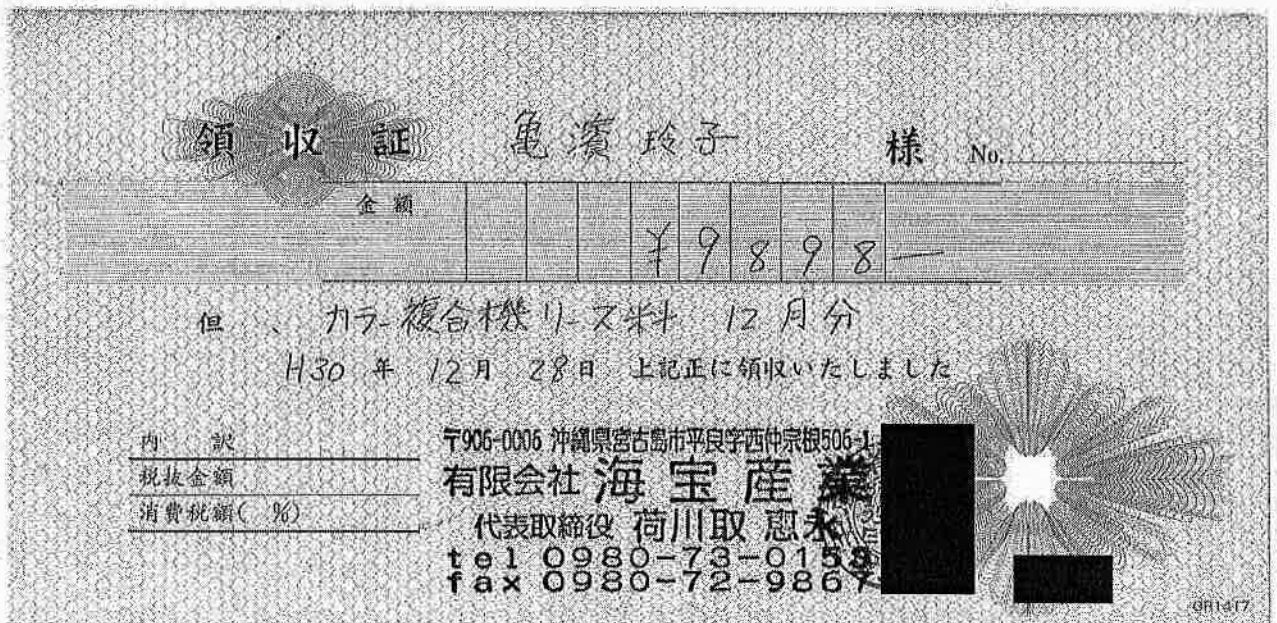 領収証 亀濱玲子 様 No.
金額 ¥9898―
但、カラー複合機リース料 12月分
H30年12月28日 上記正に領収いたしました
内訳
税抜金額
消費税額( %)
〒906-0006 沖縄県宮古島市平良字西仲宗根506-1
有限会社 海宝産業
代表取締役 荷川取 恵永
tel 0980-73-0158
fax 0980-72-9867
GR1417